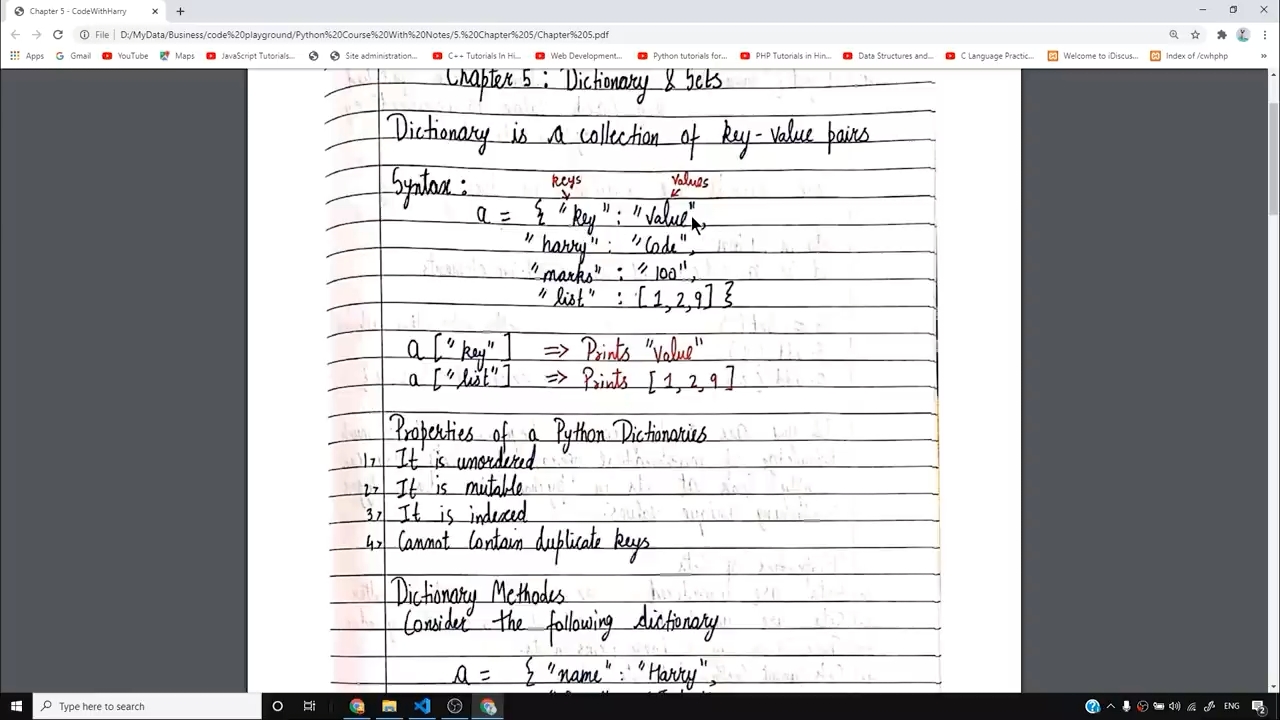 Chapter 5 - CodeWithHarry
File | D:/MyData/Business/code%20playground/Python%20Course%20With%20Notes/5.%20Chapter%205/Chapter%205.pdf
Apps Gmail YouTube Maps JavaScript Tutorials... Site administration... C++ Tutorials In Hi... Web Development... Python tutorials for... PHP Tutorials In Hi... Data Structures and... C Language Practic... Welcome to iDiscus... Index of /cwhphp
Chapter 5 : Dictionary & Sets
Dictionary is a collection of key-value pairs
Syntax :
keys values
a = { "key" : "Value",
"harry" : "Code",
"marks" : "100",
"list" : [1, 2, 9] }
a ["key"] => Prints "Value"
a ["list"] => Prints [1, 2, 9]
Properties of a Python Dictionaries
1> It is unordered
2> It is mutable
3> It is indexed
4> Cannot Contain duplicate keys
Dictionary Methodes
Consider the following dictionary
a = { "name" : "Harry",
Type here to search
ENG